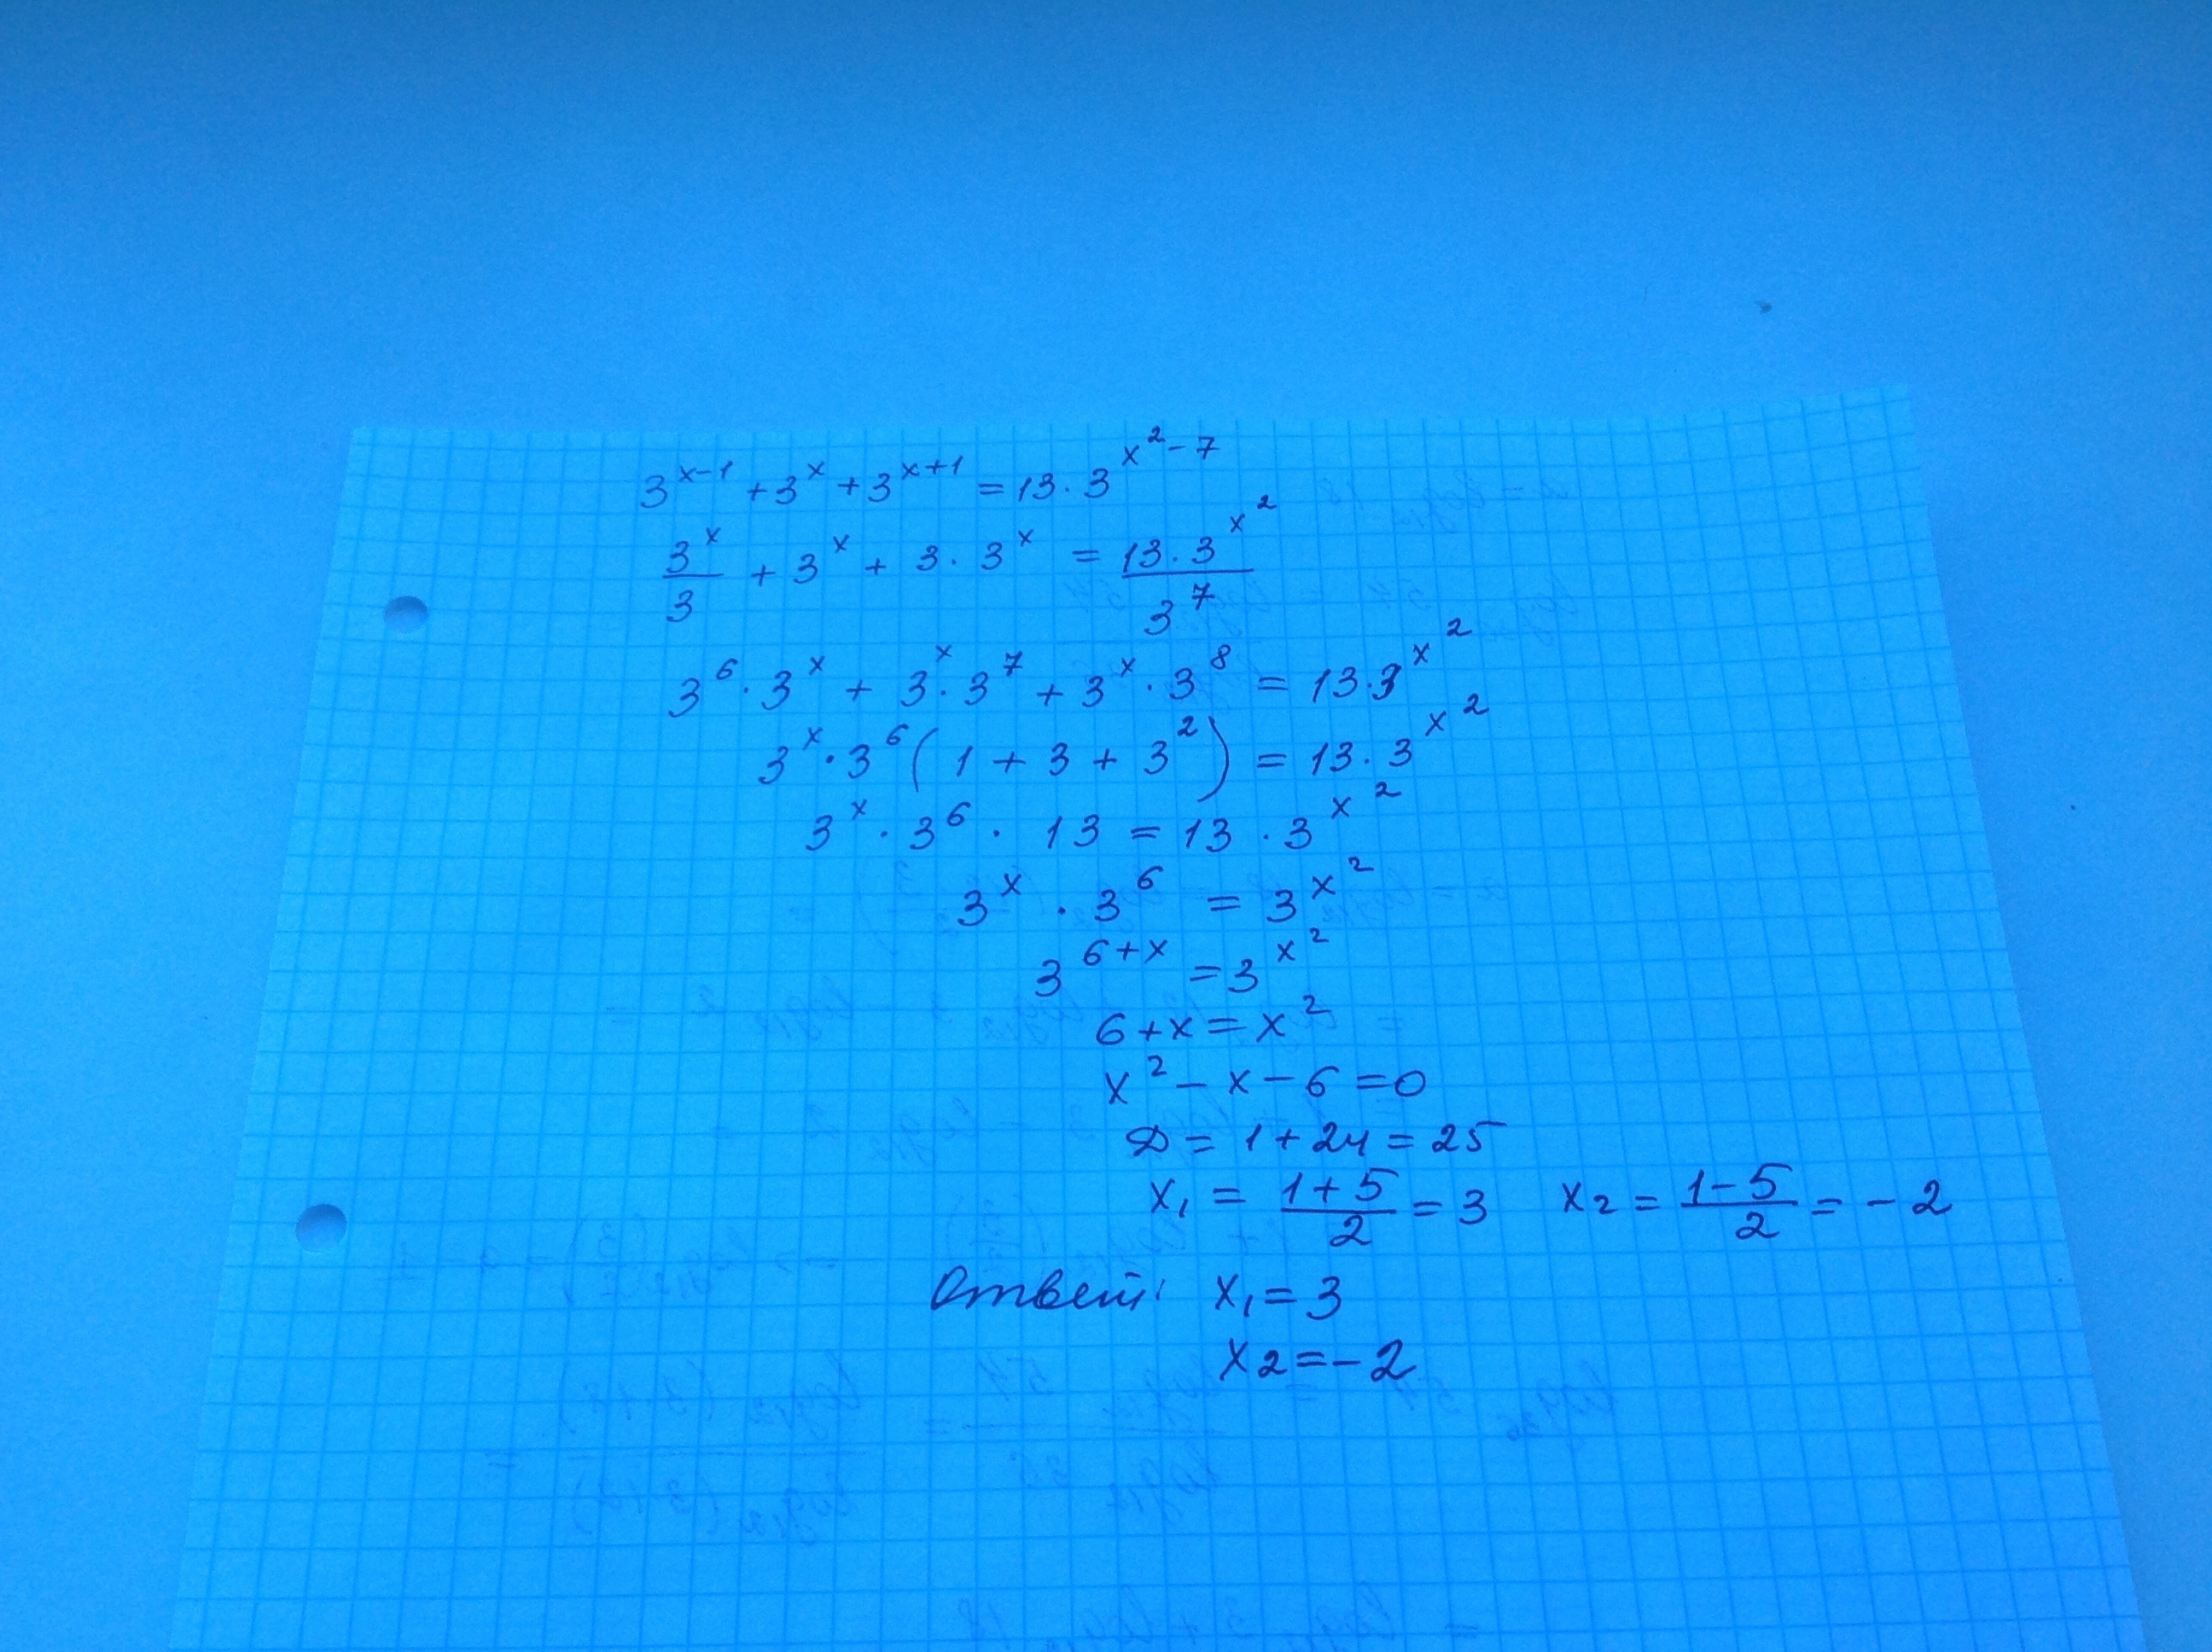 3^{x-1} + 3^x + 3^{x+1} = 13 · 3^{x^2-7}
\frac{3^x}{3} + 3^x + 3 · 3^x = \frac{13 · 3^{x^2}}{3^7}
3^6 · 3^x + 3^x · 3^7 + 3^x · 3^8 = 13 · 3^{x^2}
3^x · 3^6 (1 + 3 + 3^2) = 13 · 3^{x^2}
3^x · 3^6 · 13 = 13 · 3^{x^2}
3^x · 3^6 = 3^{x^2}
3^{6+x} = 3^{x^2}
6 + x = x^2
x^2 - x - 6 = 0
D = 1 + 24 = 25
x_1 = \frac{1+5}{2} = 3 x_2 = \frac{1-5}{2} = -2
Ответ: x_1 = 3
x_2 = -2